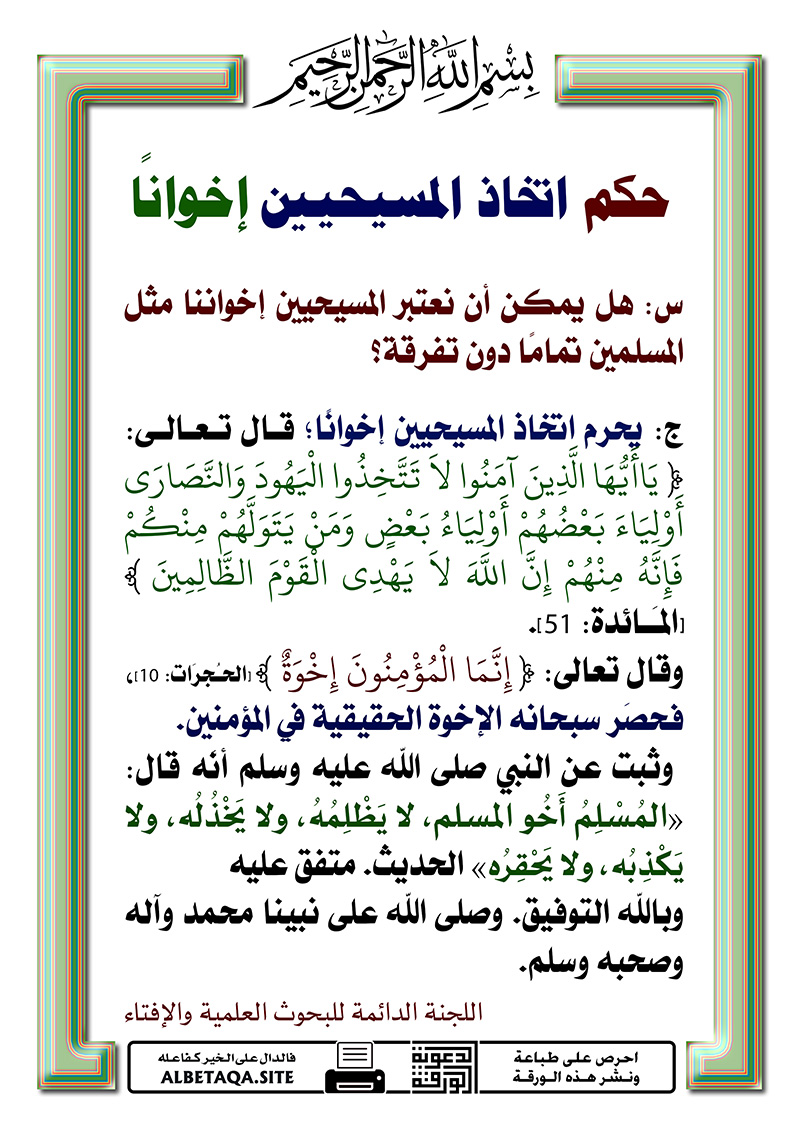 بِسْمِ اللَّهِ الرَّحْمَنِ الرَّحِيمِ
حكم اتخاذ المسيحيين إخوانًا
س: هل يمكن أن نعتبر المسيحيين إخواننا مثل
المسلمين تمامًا دون تفرقة؟
ج: يحرم اتخاذ المسيحيين إخوانًا؛ قال تعالى:
﴿ يَاأَيُّهَا الَّذِينَ آمَنُوا لاَ تَتَّخِذُوا الْيَهُودَ وَالنَّصَارَى
أَوْلِيَاءَ بَعْضُهُمْ أَوْلِيَاءُ بَعْضٍ وَمَنْ يَتَوَلَّهُمْ مِنْكُمْ
فَإِنَّهُ مِنْهُمْ إِنَّ اللَّهَ لاَ يَهْدِى الْقَوْمَ الظَّالِمِينَ ﴾
[المَائدة: 51].
وقال تعالى: ﴿ إِنَّمَا الْمُؤْمِنُونَ إِخْوَةٌ ﴾ [الحُجرَات: 10]،
فحصَر سبحانه الإخوة الحقيقية في المؤمنين.
وثبت عن النبي صلى الله عليه وسلم أنه قال:
«المُسْلِمُ أَخُو المسلم، لا يَظْلِمُهُ، ولا يَخْذُلُه، ولا
يَكْذِبُه، ولا يَحْقِرُه» الحديث. متفق عليه
وبالله التوفيق. وصلى الله على نبينا محمد وآله
وصحبه وسلم.
اللجنة الدائمة للبحوث العلمية والإفتاء
احرص على طباعة
ونشر هذه الورقة
الورقة الدعوية
فالدال على الخير كفاعله
ALBETAQA.SITE